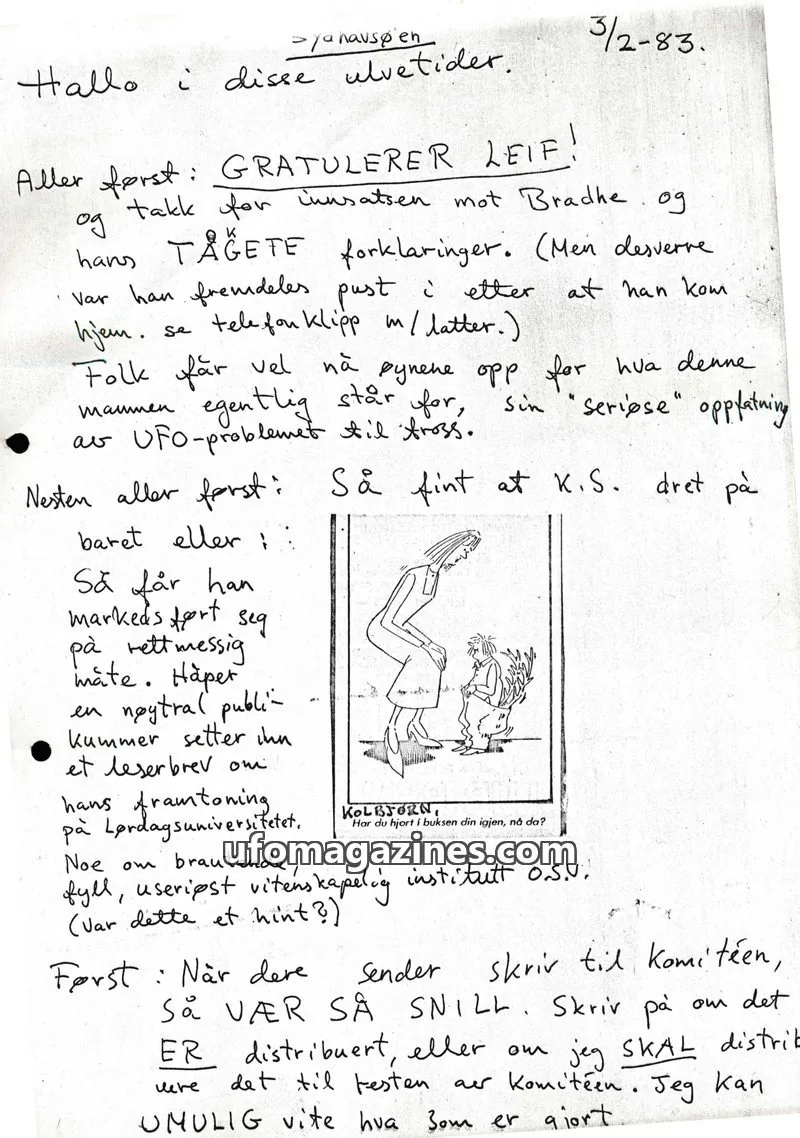 3/2-83.
Hallo i disse ulvetider.
Aller først: GRATULERER LEIF!
og takk for innsatsen mot Bradhe og
hans TÅGETE forklaringer. (Men desverre
K
var han fremdeles pust i etter at han kom
hjem. se telefonklipp m/latter.)
Folk får vel nå øynene opp for hva denne
mannen egentlig står for, sin "seriøse" oppfatning
av UFO-problemet til tross.
Nesten aller først: Så fint at K.S. dret på
baret eller:
Så får han
markedsført seg
på rettmessig
måte. Håper
en nøytral publi-
kummer setter inn
et leserbrev om
hans framtoning
på Lørdagsuniversitetet.
Noe om
fyll, useriøst vitenskapelig institutt O.S.V.
(var dette et hint?)
KOLBJØRN,
Har du hjort i buksen din igjen, nå da?
ufomagazines.com
Først: Når dere sender skriv til komitéen,
Så VÆR SÅ SNILL. Skriv på om det
ER distribuert, eller om jeg SKAL distrib
uere det til resten av komitéen. Jeg kan
UMULIG vite hva som er gjort